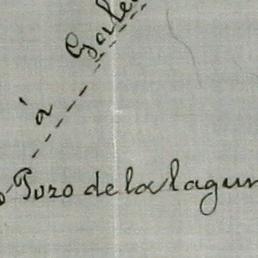 á Gale
Pozo de la lagun